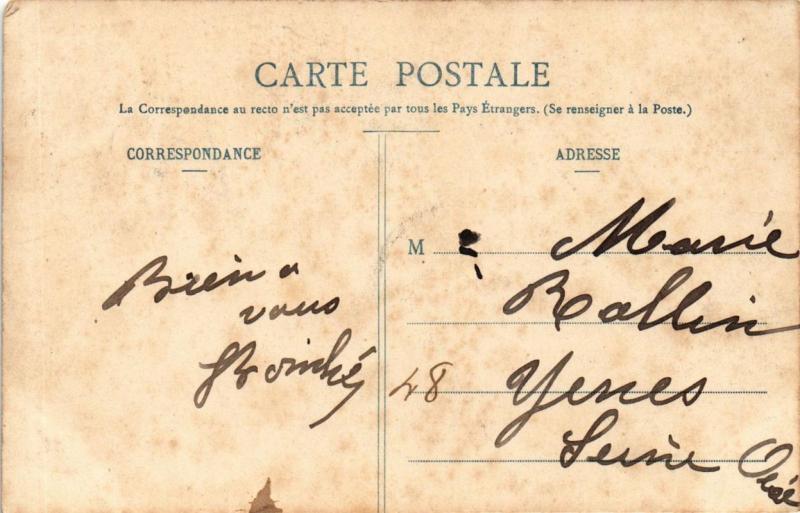 CARTE POSTALE
La Correspondance au recto n'est pas acceptée par tous les Pays Étrangers. (Se renseigner à la Poste.)
CORRESPONDANCE
ADRESSE
Bien a
vous
M Marie
Rollin
48 Yerres
Seine Oise